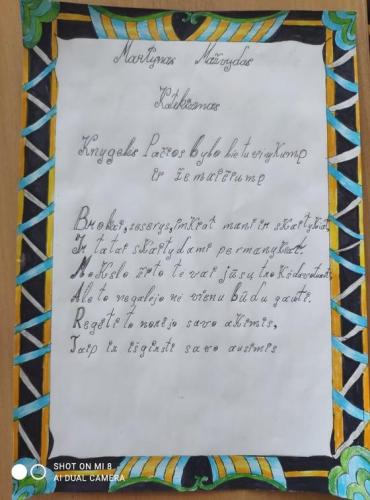 Martynas Mažvydas
Katekizmas
Knygeles Pačios bylo lietuvinykump
ir žemaičiump
Broliai, seserys, imkiat mani ir skaitykiat,
Ir tatai skaitydami permanykiat.
Mokslo šito tėvai jūsų trokšdavo turėti,
Ale to negalėjo nė vienu būdu gauti.
Regėti to norėjo savo akimis,
Taip ir išgirsti savo ausimis
SHOT ON MI 8
AI DUAL CAMERA